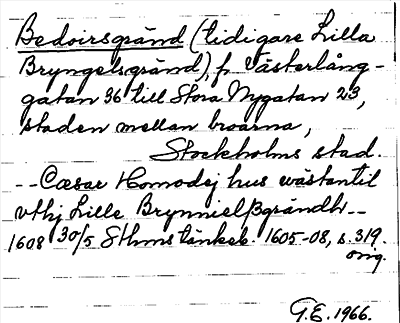 Bedoirsgränd (tidigare Lilla
Bryngelsgränd), fr. Västerlång-
gatan 36 till Stora Nygatan 23,
staden mellan broarna,
Stockholms stad.
-- Cæsar Homodej hus wästantil
vthj Lille Brynnielßgrändh --
1608 30/5 Sthms tänkeb. 1605-08, s. 319.
orig.
G.E. 1966.